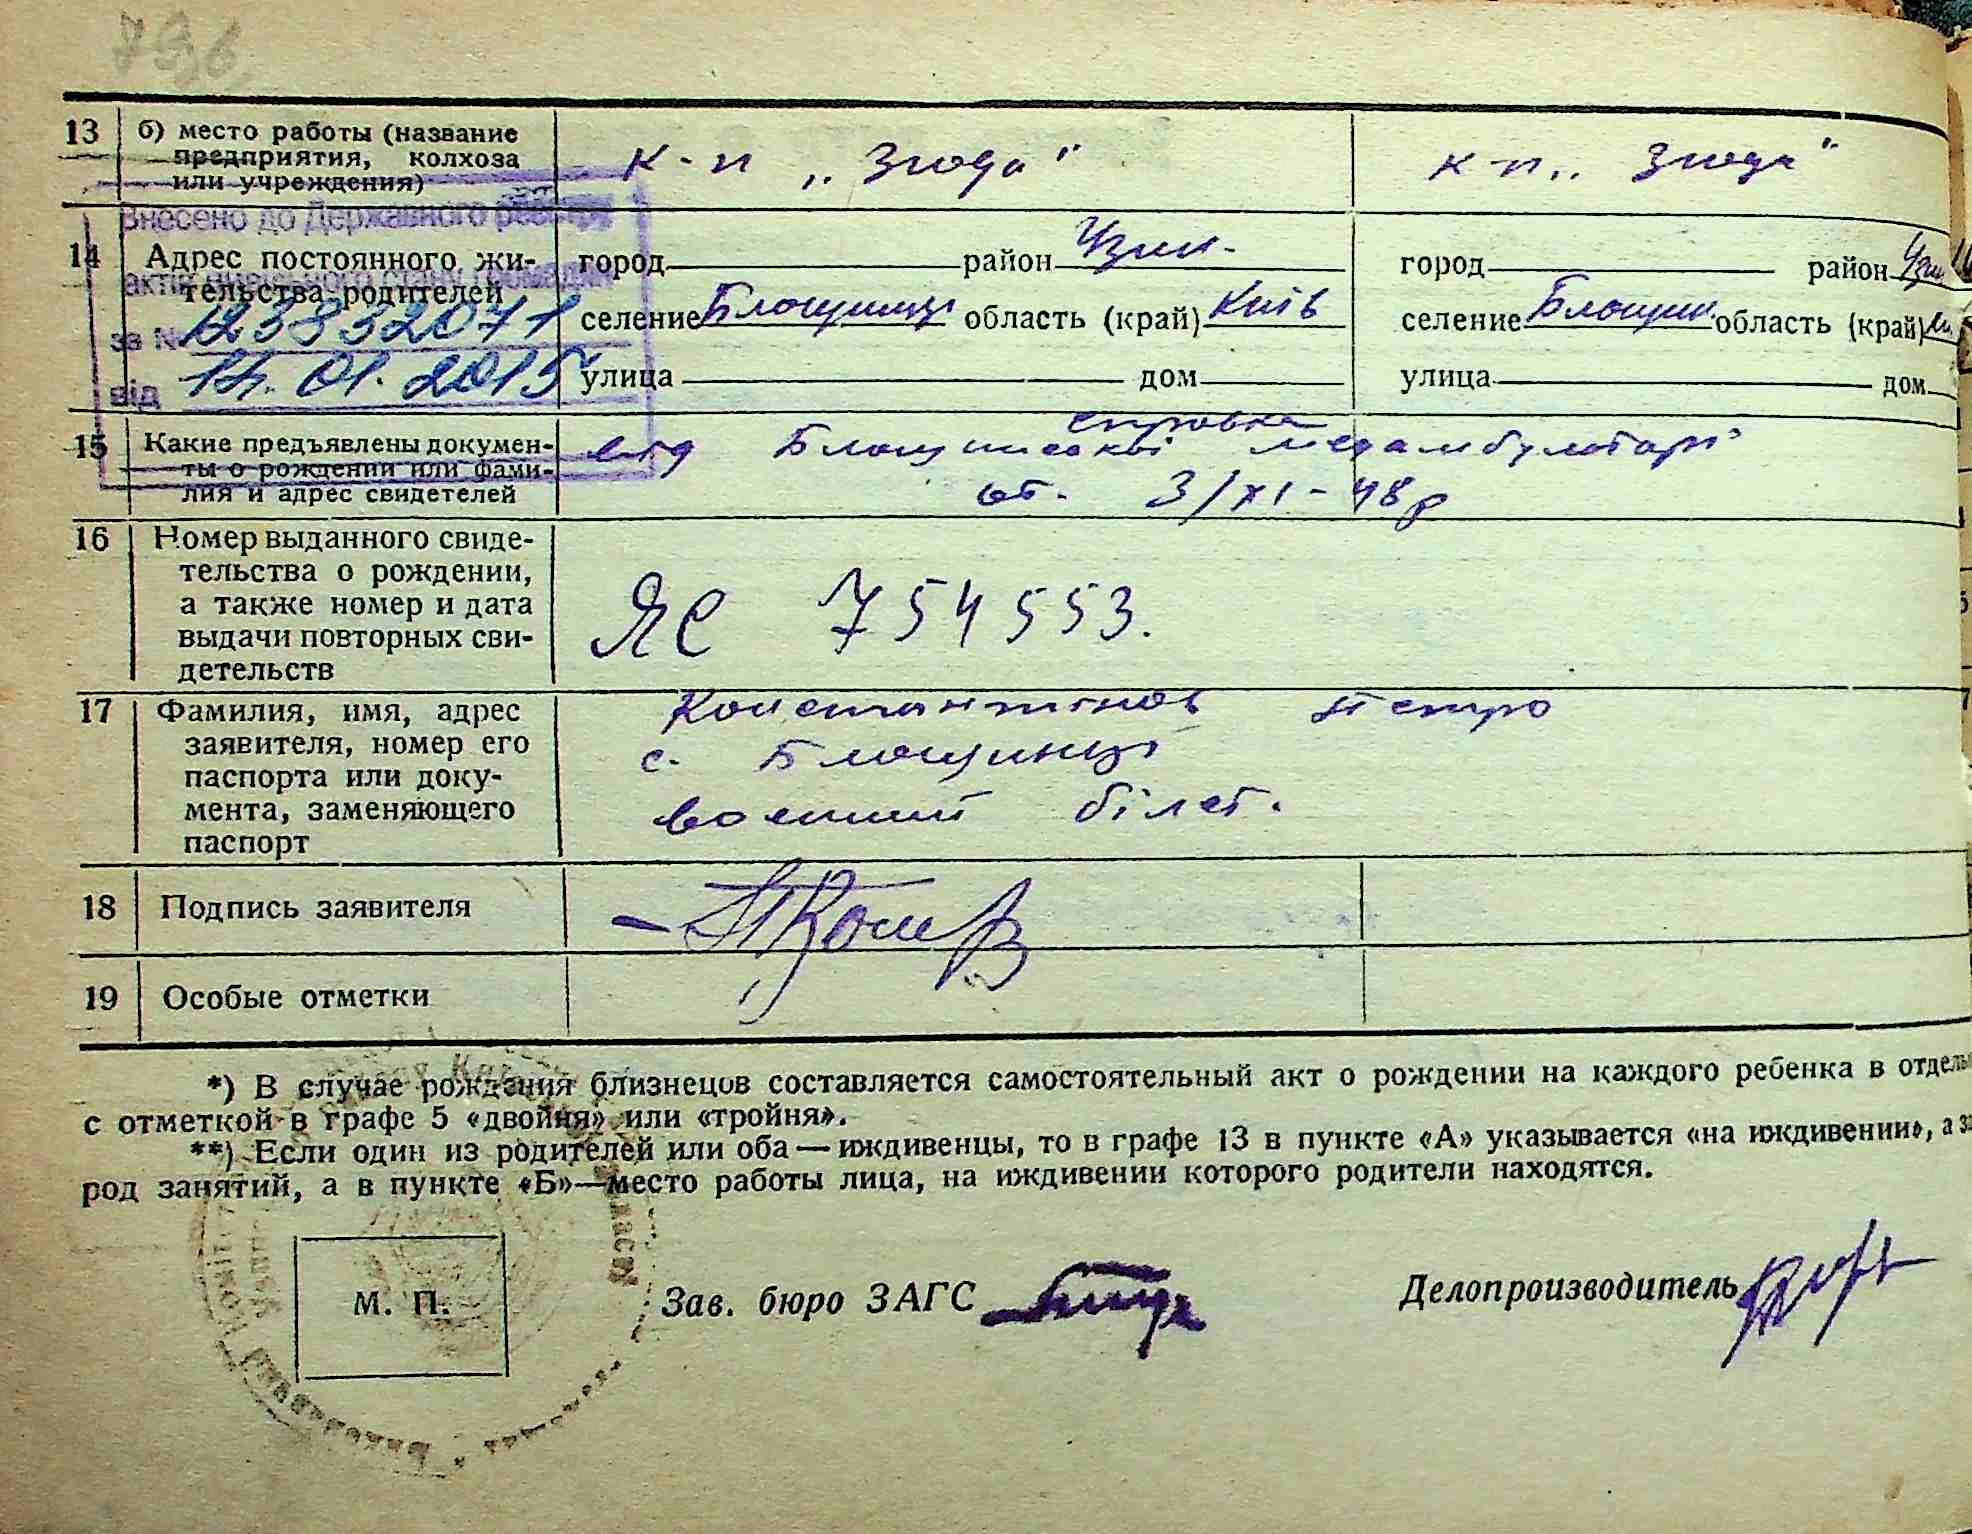 796
13 б) место работы (название предприятия, колхоза или учреждения) к-п „Згода" к-п „Згода"
Внесено до Державного реєстру
актів цивільного стану громадян
за № 123832071
від 14.01.2015
14 Адрес постоянного жительства родителей
город район Узин. город район Узин
селение Блощинці область (край) Київ селение Блощин. область (край)
улица дом улица дом
15 Какие предъявлены документы о рождении или фамилия и адрес свидетелей
справка
від Блощинської медамбулаторії
от. 3/XI-48р
16 Номер выданного свидетельства о рождении, а также номер и дата выдачи повторных свидетельств
ЯС 754553.
17 Фамилия, имя, адрес заявителя, номер его паспорта или документа, заменяющего паспорт
Константінов Петро
с. Блощинці
военний білет.
18 Подпись заявителя
19 Особые отметки
*) В случае рождения близнецов составляется самостоятельный акт о рождении на каждого ребенка в отдель
с отметкой в графе 5 «двойня» или «тройня».
**) Если один из родителей или оба — иждивенцы, то в графе 13 в пункте «А» указывается «на иждивении», а за
род занятий, а в пункте «Б»—место работы лица, на иждивении которого родители находятся.
М. П. Зав. бюро ЗАГС Делопроизводитель